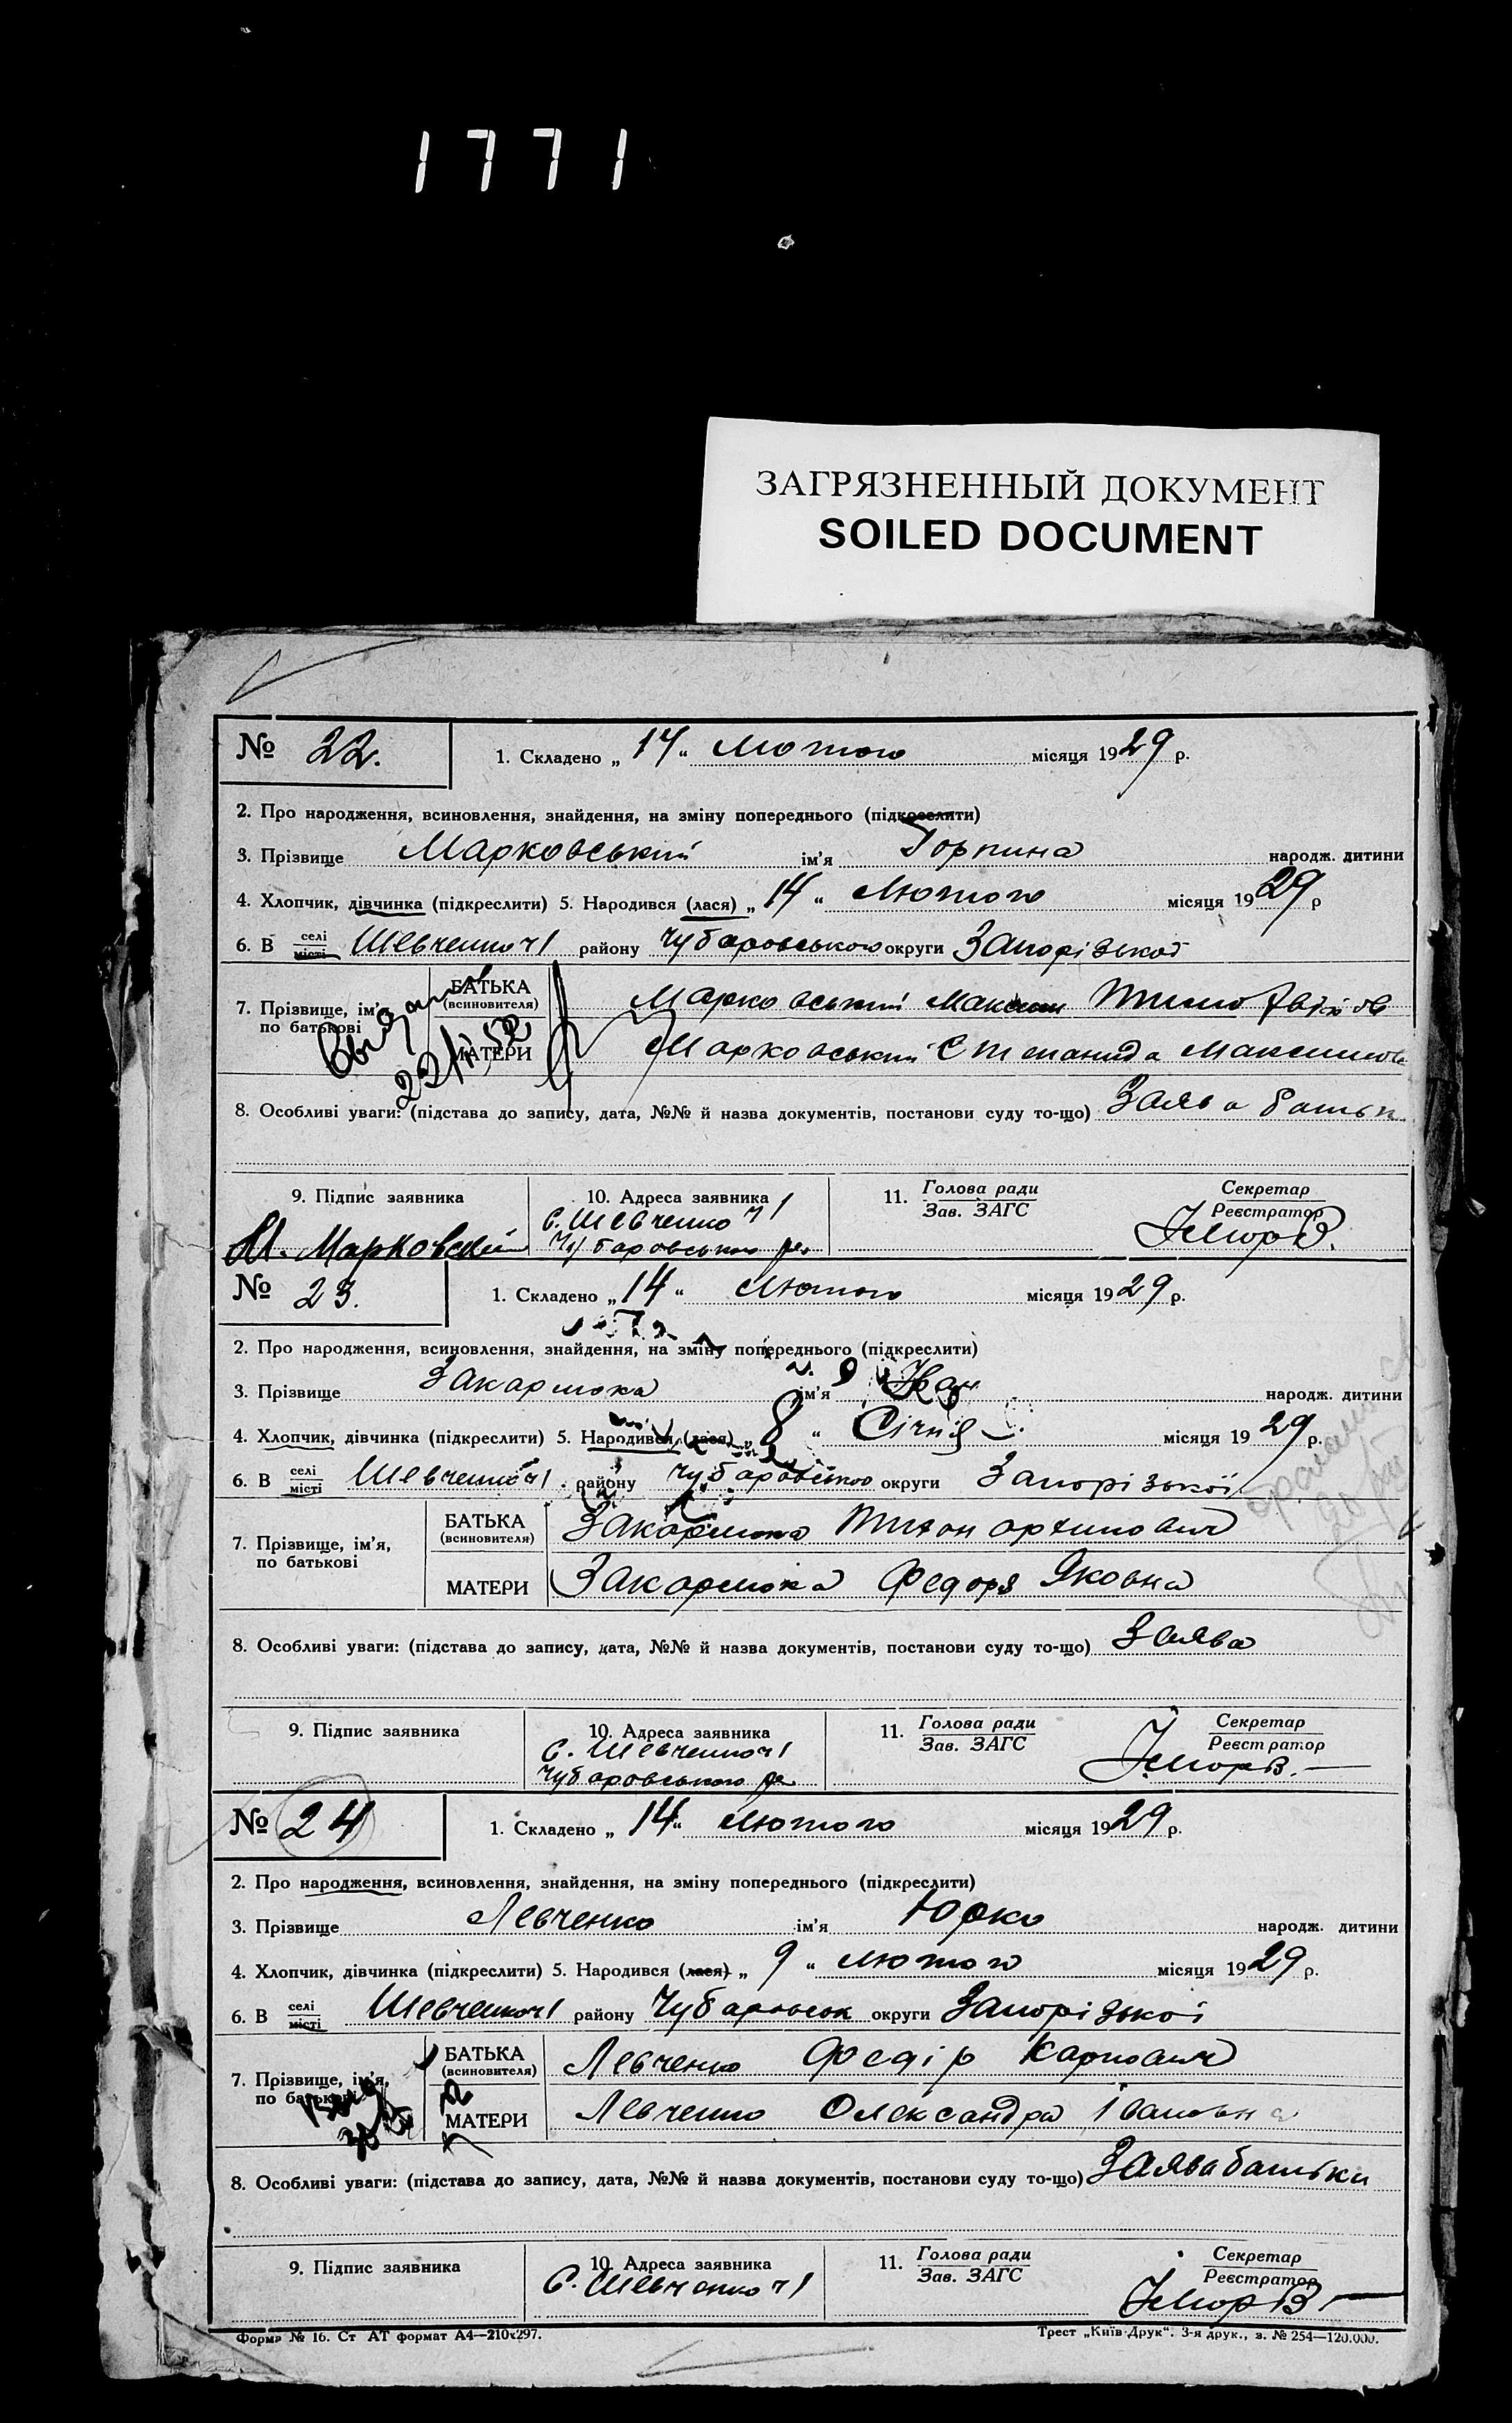 1771
ЗАГРЯЗНЕННЫЙ ДОКУМЕНТ
SOILED DOCUMENT
№ 22. 1. Складено „ 14 “ Лютого місяця 1929 р.
2. Про народження, всиновлення, знайдення, на зміну попереднього (підкреслити)
3. Прізвище Марковський ім'я Горпина народж. дитини
4. Хлопчик, дівчинка (підкреслити) 5. Народився (лася) „ 14 “ Лютого місяця 1929 р
6. В селі місті Шевченко ч1 району Чубаровського округи Запорізької
7. Прізвище, ім'я, по батькові
БАТЬКА (всиновителя) Марковський Максим
МАТЕРИ Марковський Степанида
8. Особливі уваги: (підстава до запису, дата, №№ й назва документів, постанови суду то-що) Заява батьк
9. Підпис заявника 10. Адреса заявника 11. Голова ради Зав. ЗАГС Секретар Реєстратор
М. Марковский с. Шевченко ч1 Чубаровського ра
№ 23. 1. Складено „ 14 “ Лютого місяця 1929 р.
2. Про народження, всиновлення, знайдення, на зміну попереднього (підкреслити)
3. Прізвище Закарлюка ім'я Іван народж. дитини
4. Хлопчик, дівчинка (підкреслити) 5. Народився (лася) „ 8 “ Січня місяця 1929 р.
6. В селі місті Шевченко ч1 району Чубаровського округи Запорізької
7. Прізвище, ім'я, по батькові
БАТЬКА (всиновителя) Закарлюка Тихон Архипович
МАТЕРИ Закарлюка Федоря Яковна
8. Особливі уваги: (підстава до запису, дата, №№ й назва документів, постанови суду то-що) Заява
9. Підпис заявника 10. Адреса заявника 11. Голова ради Зав. ЗАГС Секретар Реєстратор
с. Шевченко ч1 Чубаровського ра
№ 24 1. Складено „ 14 “ Лютого місяця 1929 р.
2. Про народження, всиновлення, знайдення, на зміну попереднього (підкреслити)
3. Прізвище Левченко ім'я Юрко народж. дитини
4. Хлопчик, дівчинка (підкреслити) 5. Народився (лася) „ 9 “ Лютого місяця 1929 р.
6. В селі місті Шевченко ч1 району Чубаровськ округи Запорізької
7. Прізвище, ім'я, по батькові
БАТЬКА (всиновителя) Левченко Федір Карпович
МАТЕРИ Левченко Олександра Івановна
8. Особливі уваги: (підстава до запису, дата, №№ й назва документів, постанови суду то-що) Заява батьки
9. Підпис заявника 10. Адреса заявника 11. Голова ради Зав. ЗАГС Секретар Реєстратор
с. Шевченко ч1
Форма № 16. Ст АТ формат А4—210х297. Трест „Київ-Друк“. 3-я друк., з. № 254—120.000.